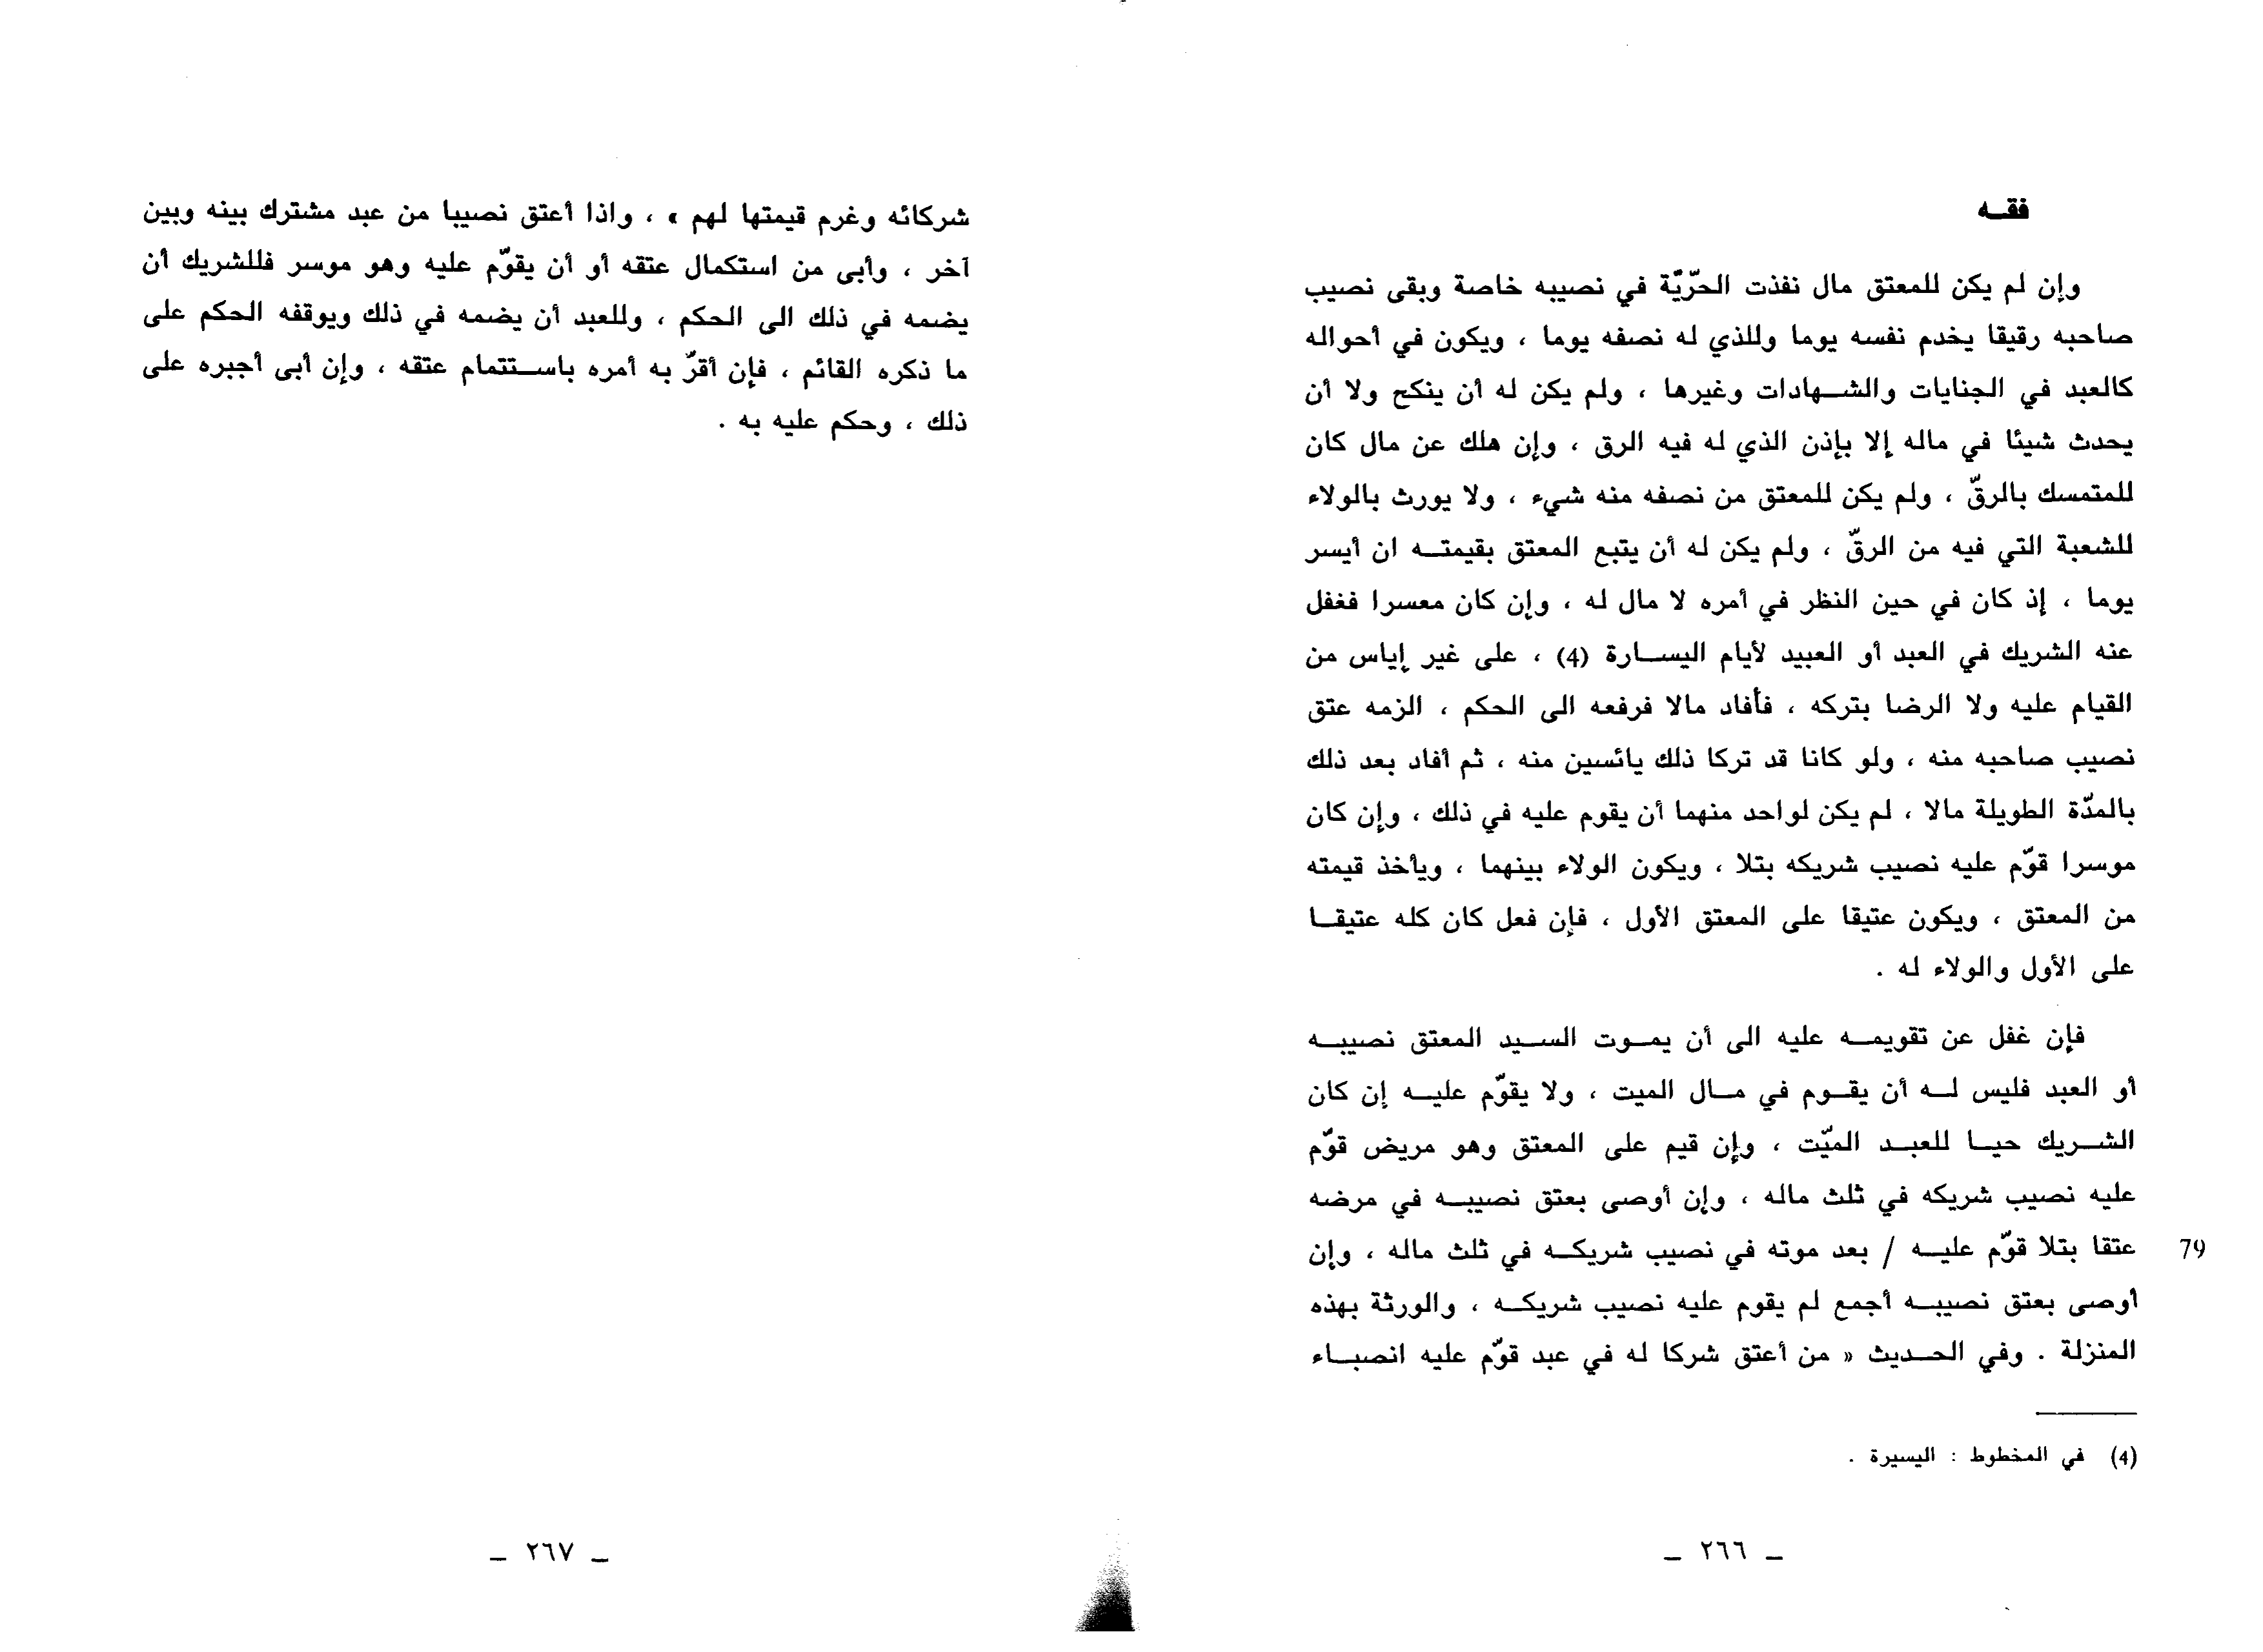 فقـه
وإن لم يكن للمعتق مال نفذت الحرّيّة في نصيبه خاصة وبقى نصيب
صاحبه رقيقا يخدم نفسه يوما وللذي له نصفه يوما ، ويكون في أحواله
كالعبد في الجنايات والشـهادات وغيرها ، ولم يكن له أن ينكح ولا أن
يحدث شيئا في ماله إلا بإذن الذي له فيه الرق ، وإن هلك عن مال كان
للمتمسك بالرقّ ، ولم يكن للمعتق من نصفه منه شيء ، ولا يورث بالولاء
للشعبة التي فيه من الرقّ ، ولم يكن له أن يتبع المعتق بقيمتـه ان أيسر
يوما ، إذ كان في حين النظر في أمره لا مال له ، وإن كان معسرا فغفل
عنه الشريك في العبد أو العبيد لأيام اليسـارة (4) ، على غير إياس من
القيام عليه ولا الرضا بتركه ، فأفاد مالا فرفعه الى الحكم ، الزمه عتق
نصيب صاحبه منه ، ولو كانا قد تركا ذلك يائسين منه ، ثم أفاد بعد ذلك
بالمدّة الطويلة مالا ، لم يكن لواحد منهما أن يقوم عليه في ذلك ، وإن كان
موسرا قوّم عليه نصيب شريكه بتلا ، ويكون الولاء بينهما ، ويأخذ قيمته
من المعتق ، ويكون عتيقا على المعتق الأول ، فإن فعل كان كله عتيقـا
على الأول والولاء له .
فإن غفل عن تقويمـه عليه الى أن يمـوت السـيد المعتق نصيبـه
أو العبد فليس لـه أن يقـوم في مـال الميت ، ولا يقوّم عليـه إن كان
الشـريك حيـا للعبـد الميّت ، وإن قيم على المعتق وهو مريض قوّم
عليه نصيب شريكه في ثلث ماله ، وإن أوصى بعتق نصيبـه في مرضه
عتقا بتلا قوّم عليـه / بعد موته في نصيب شريكـه في ثلث ماله ، وإن
79
أوصى بعتق نصيبـه أجمع لم يقوم عليه نصيب شريكـه ، والورثة بهذه
المنزلة . وفي الحـديث « من أعتق شركا له في عبد قوّم عليه انصبـاء
(4) في المخطوط : اليسيرة .
ـ ٢٦٦ ـ
شركائه وغرم قيمتها لهم » ، واذا أعتق نصيبا من عبد مشترك بينه وبين
آخر ، وأبى من استكمال عتقه أو أن يقوّم عليه وهو موسر فللشريك أن
يضمه في ذلك الى الحكم ، وللعبد أن يضمه في ذلك ويوقفه الحكم على
ما ذكره القائم ، فإن أقرّ به أمره باسـتتمام عتقه ، وإن أبى أجبره على
ذلك ، وحكم عليه به .
ـ ٢٦٧ ـ